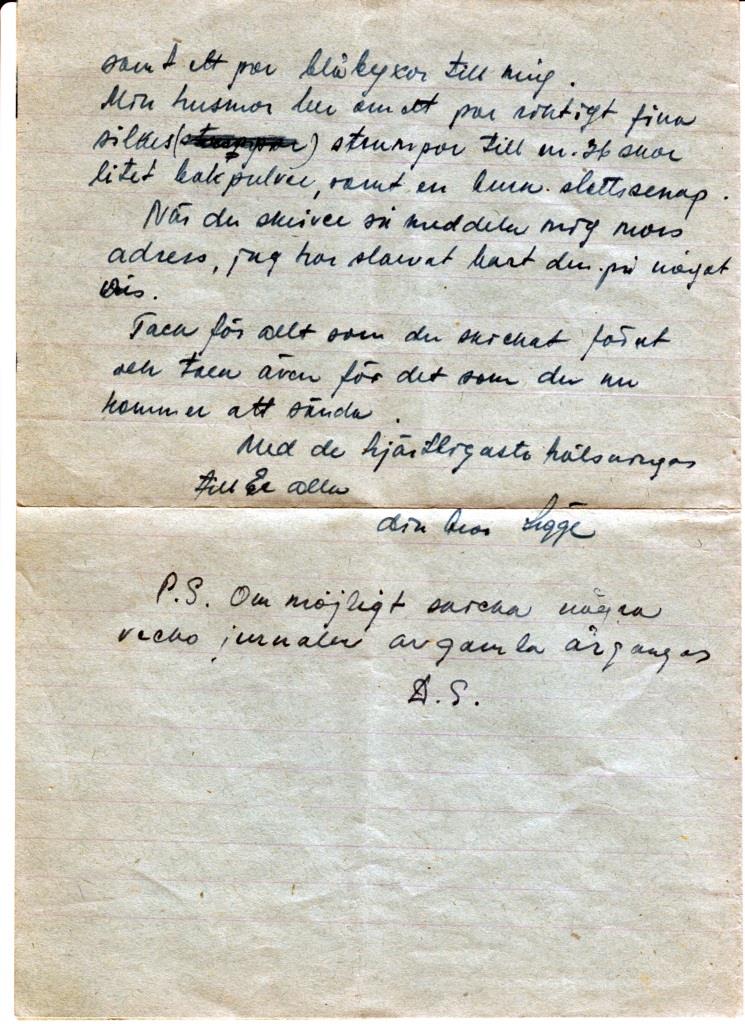 samt ett par blåbyxor till mig.
Min husmor ber om ett par riktigt fina
silkes( ) strumpor till nr. 36 skor
litet bakpulver, samt en burk slottssenap.
När du skriver så meddela mig mors
adress, jag har slarvat bort den på något
vis.
Tack för allt som du skickat förut
och tack även för det som du nu
kommer att sända.
Med de hjärtligaste hälsningar
till Er alla
din bror Sigge
P.S. Om möjligt skicka några
vecko jurnaler av gamla årgångar
D.S.